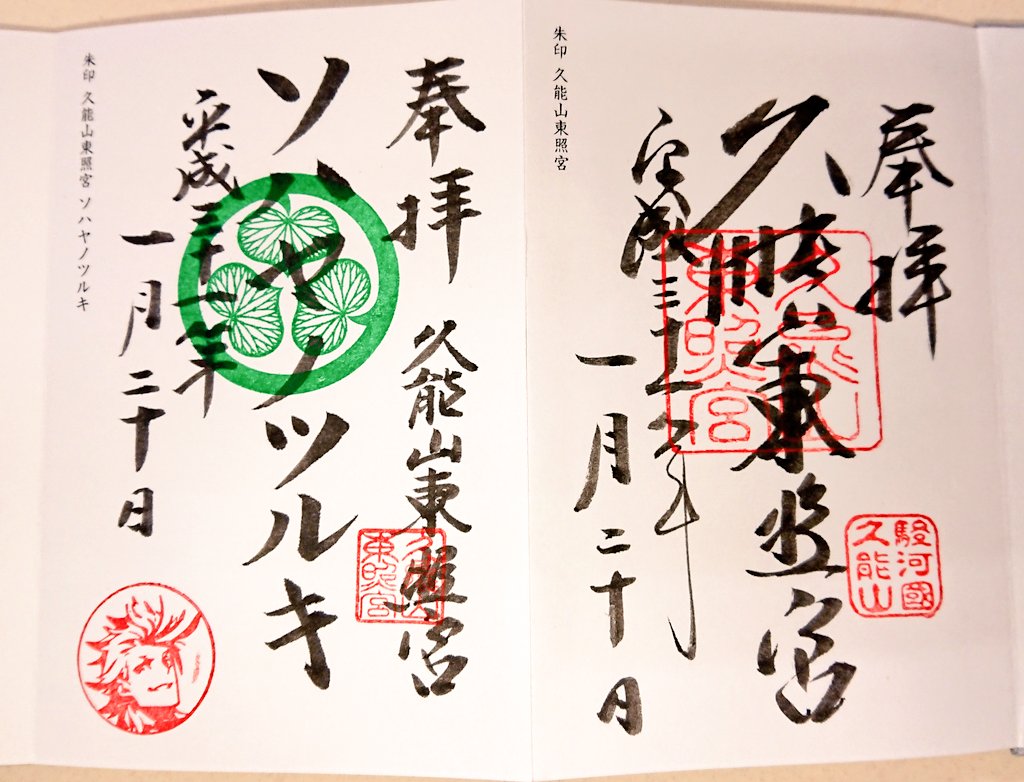 奉拝
久能山東照宮
平成三十一年
一月二十日
久能山東照宮
駿河國
久能山
朱印 久能山東照宮
奉拝
久能山東照宮
久能山
東照宮
ソハヤノツルキ
平成三十一年
一月二十日
朱印 久能山東照宮 ソハヤノツルキ